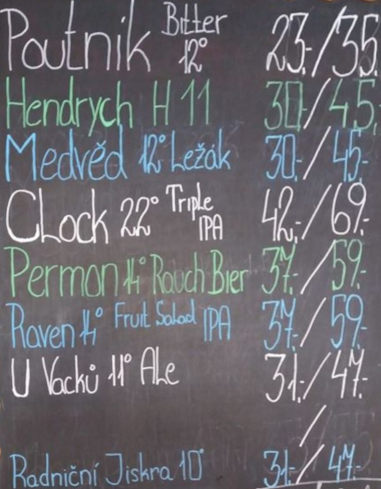 Poutník Bitter 12° 23.-/35.-
Hendrych H 11 30.-/45.-
Medvěd 12° Ležák 30.-/45.-
CLock 22° Triple IPA 42.-/69.-
Permon 14° Rauch Bier 37.-/59.-
Raven 14° Fruit Salad IPA 37.-/59.-
U Vacků 11° ALe 31.-/47.-
/
Radniční Jiskra 10° 31.-/47.-